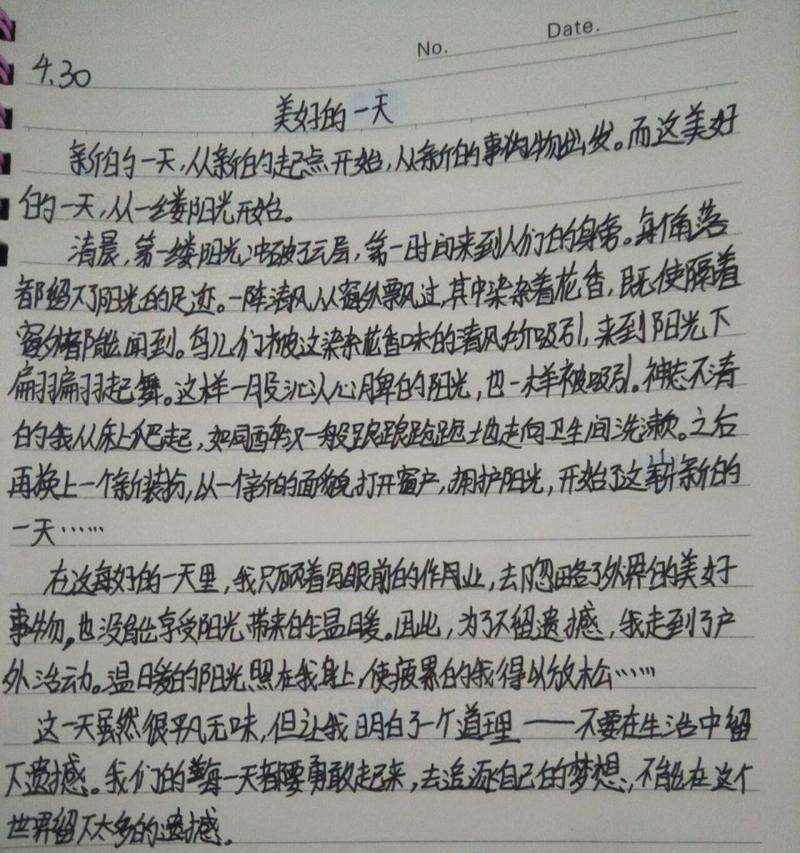 No.
Date.
4.30
美好的一天
新的一天,从新的起点开始,从新的事物出发。而这美好
的一天,从一缕阳光开始。
清晨,第一缕阳光冲破了云层,第一时间来到人们的身旁。每个角落
都留下了阳光的足迹。一阵清风从窗外飘过,其中染杂着花香,既使隔着
窗外都能闻到。鸟儿们被这染杂花香味的清风所吸引,来到阳光下
翩翩起舞。这样一股沁人心脾的阳光,也一样被吸引。神志不清
的我从床上爬起,如同醉汉一般踉踉跄跄地走向卫生间洗漱。之后
再换上一个新装扮,以一个新的面貌打开窗户,拥护阳光,开始了这崭新的
一天……
在这每好的一天里,我只顾着写眼前的作业,去忽略了外界的美好
事物,也没能享受阳光带来的温暖。因此,为了不留遗憾,我走到了户
外活动。温暖的阳光照在我身上,使疲累的我得以放松……
这一天虽然很平凡无味,但让我明白了一个道理——不要在生活中留
下遗憾。我们的每一天都要勇敢起来,去追逐自己的梦想,不能在这个
世界留下太多的遗憾。